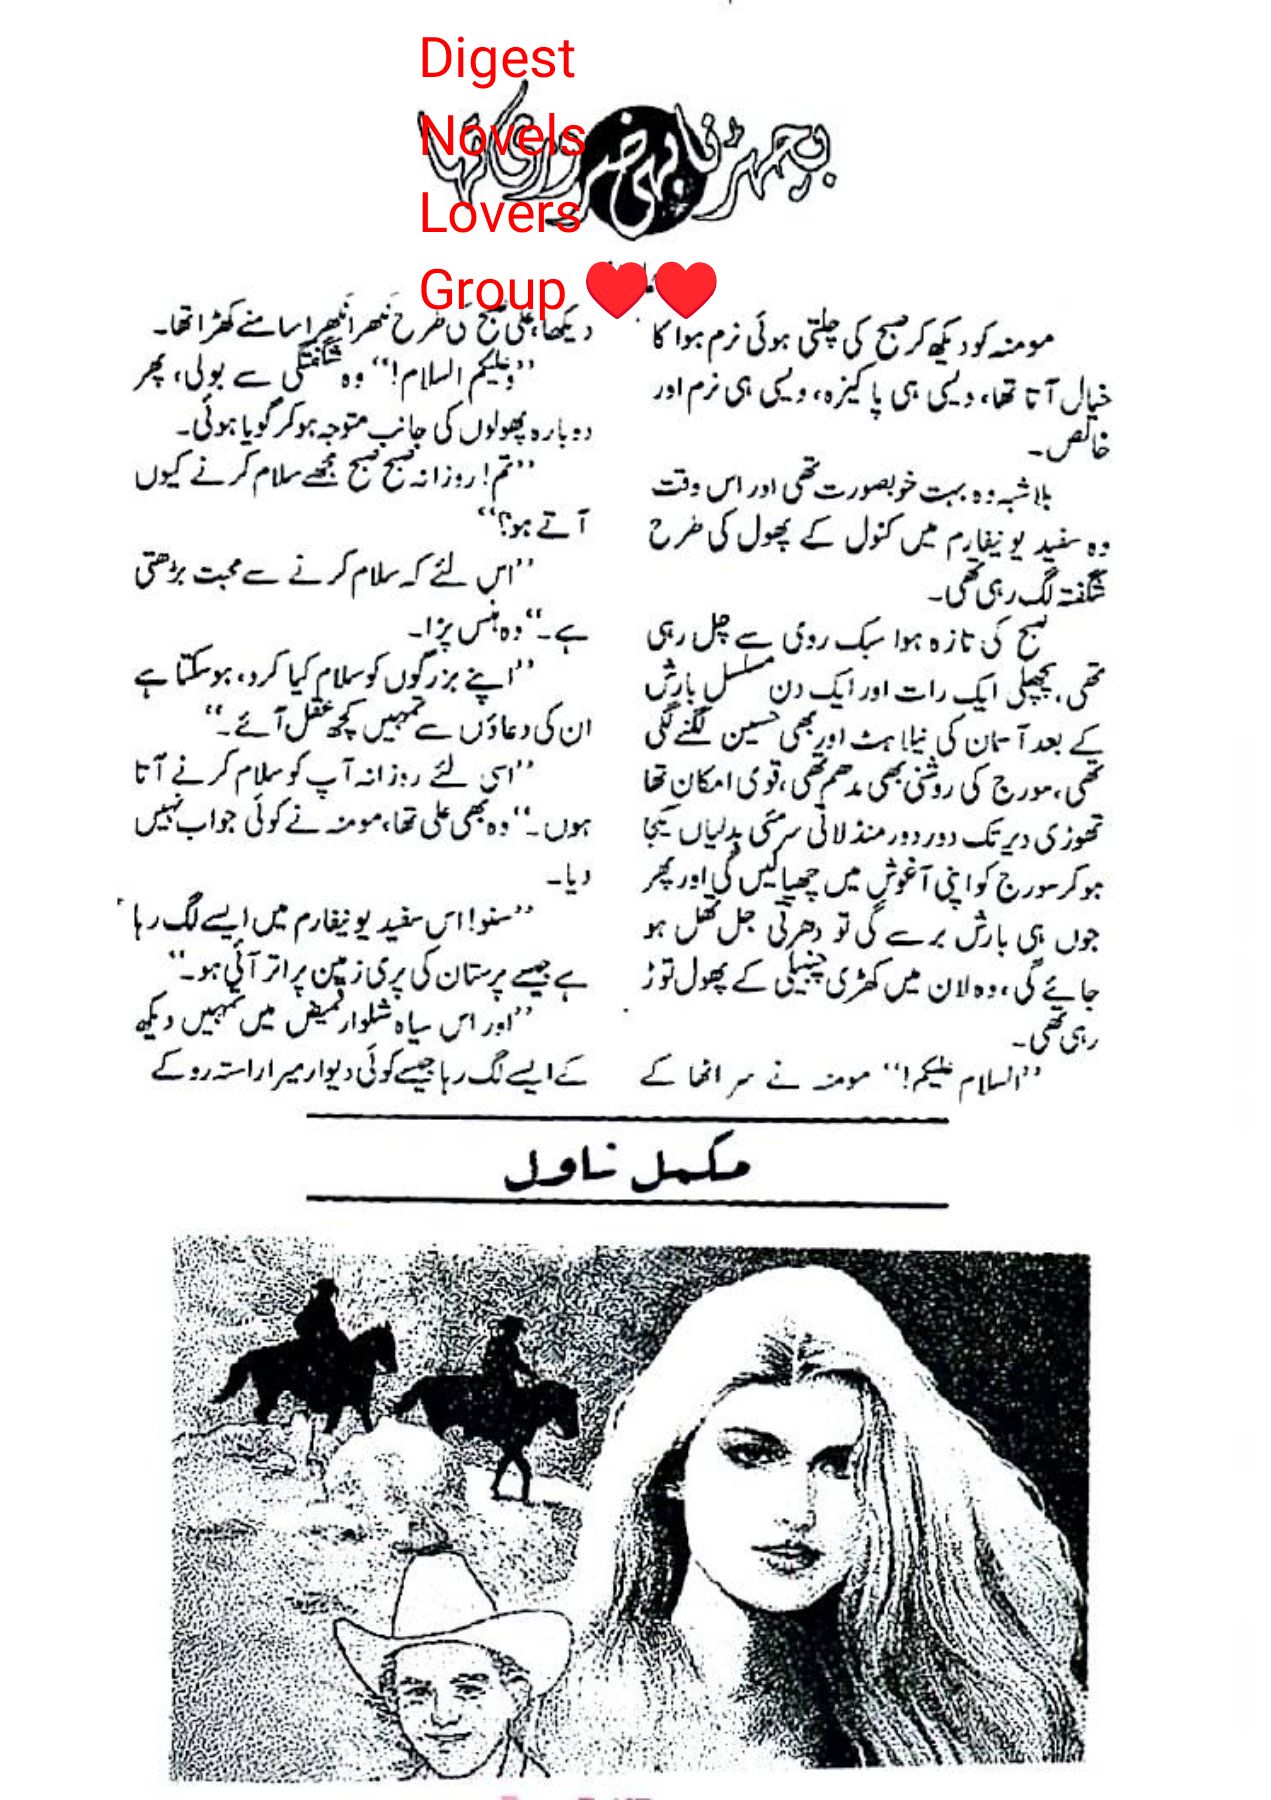 Digest
Novels
Lovers
Group ❤❤
بچھڑنا بھی ضروری تھا
مومنہ کو دیکھ کر صبح کی چلتی ہوئی نرم ہوا کا
خیال آتا تھا، ویسی ہی پاکیزہ، ویسی ہی نرم اور
خالص۔
بلاشبہ وہ بہت خوبصورت تھی اور اس وقت
وہ سفید یونیفارم میں کنول کے پھول کی طرح
شگفتہ لگ رہی تھی۔
صبح کی تازہ ہوا سبک روی سے چل رہی
تھی، پچھلی ایک رات اور ایک دن مسلسل بارش
کے بعد آسمان کی نیلاہٹ اور بھی حسین لگنے لگی
تھی، سورج کی روشنی بھی مدھم تھی، قوی امکان تھا
تھوڑی دیر تک دور دور منڈلاتی سرمئی بدلیاں یکجا
ہو کر سورج کو اپنی آغوش میں چھپا لیں گی اور پھر
جوں ہی بارش برسے گی تو دھرتی جل تھل ہو
جائے گی، وہ لان میں کھڑی چنبیلی کے پھول توڑ
رہی تھی۔
”السلام علیکم!“ مومنہ نے سر اٹھا کے
دیکھا، علی صبح کی طرح نکھرا نکھرا سامنے کھڑا تھا۔
”وعلیکم السلام!“ وہ شگفتگی سے بولی، پھر
دوبارہ پھولوں کی جانب متوجہ ہو کر گویا ہوئی۔
”تم! روزانہ صبح صبح مجھے سلام کرنے کیوں
آتے ہو؟“
”اس لئے کہ سلام کرنے سے محبت بڑھتی
ہے۔“ وہ ہنس پڑا۔
”اپنے بزرگوں کو سلام کیا کرو، ہو سکتا ہے
ان کی دعاؤں سے تمہیں کچھ عقل آئے۔“
”اسی لئے روزانہ آپ کو سلام کرنے آتا
ہوں۔“ وہ بھی علی تھا، مومنہ نے کوئی جواب نہیں
دیا۔
”سنو! اس سفید یونیفارم میں ایسے لگ رہا
ہے جیسے پرستان کی پری زمین پر اتر آئی ہو۔“
”اور اس سیاہ شلوار قمیض میں تمہیں دیکھ
کے ایسے لگ رہا جیسے کوئی دیوار میرا راستہ روکے
مکمل ناول